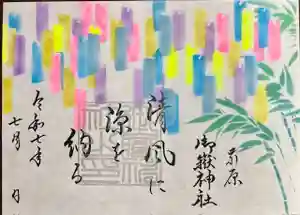 萩原
御嶽神社
清風に
涼を
納る
令和七年
七月 日